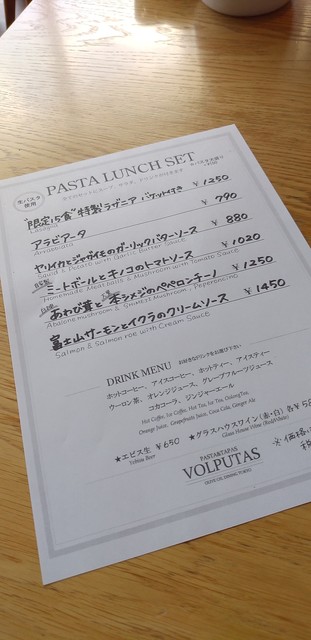 生パスタ使用
PASTA LUNCH SET
"限定15食"特製ラザニア バゲット付き ¥1250
Lasagna
アラビアータ ¥790
Arrabbiata
ヤリイカとジャガイモのガーリックバターソース ¥880
Squid & Potato with Garlic Butter Sauce
ミートボールとキノコのトマトソース ¥1020
Homemade Meatballs & Mushroom with Tomato Sauce
あわび茸と本シメジのペペロンチーノ ¥1250
Abalone mushroom & Shimeji Mushroom / Peperoncino
富士山サーモンとイクラのクリームソース ¥1450
Salmon & Salmon roe with Cream Sauce
DRINK MENU お好きなドリンクをお選び下さい
ホットコーヒー、アイスコーヒー、ホットティー、アイスティー
ウーロン茶、オレンジジュース、グレープフルーツジュース
コカコーラ、ジンジャーエール
Hot Coffee, Ice Coffee, Hot Tea, Ice Tea, OolongTea,
Orange Juice, Grapefruits Juice, Coca Cola, Ginger Ale
★エビス生 ¥650 ★グラスハウスワイン(赤・白) 各¥5
Yebisu Beer Glass House Wine (Red/White)
※価格
税
PASTA&TAPAS
VOLPUTAS